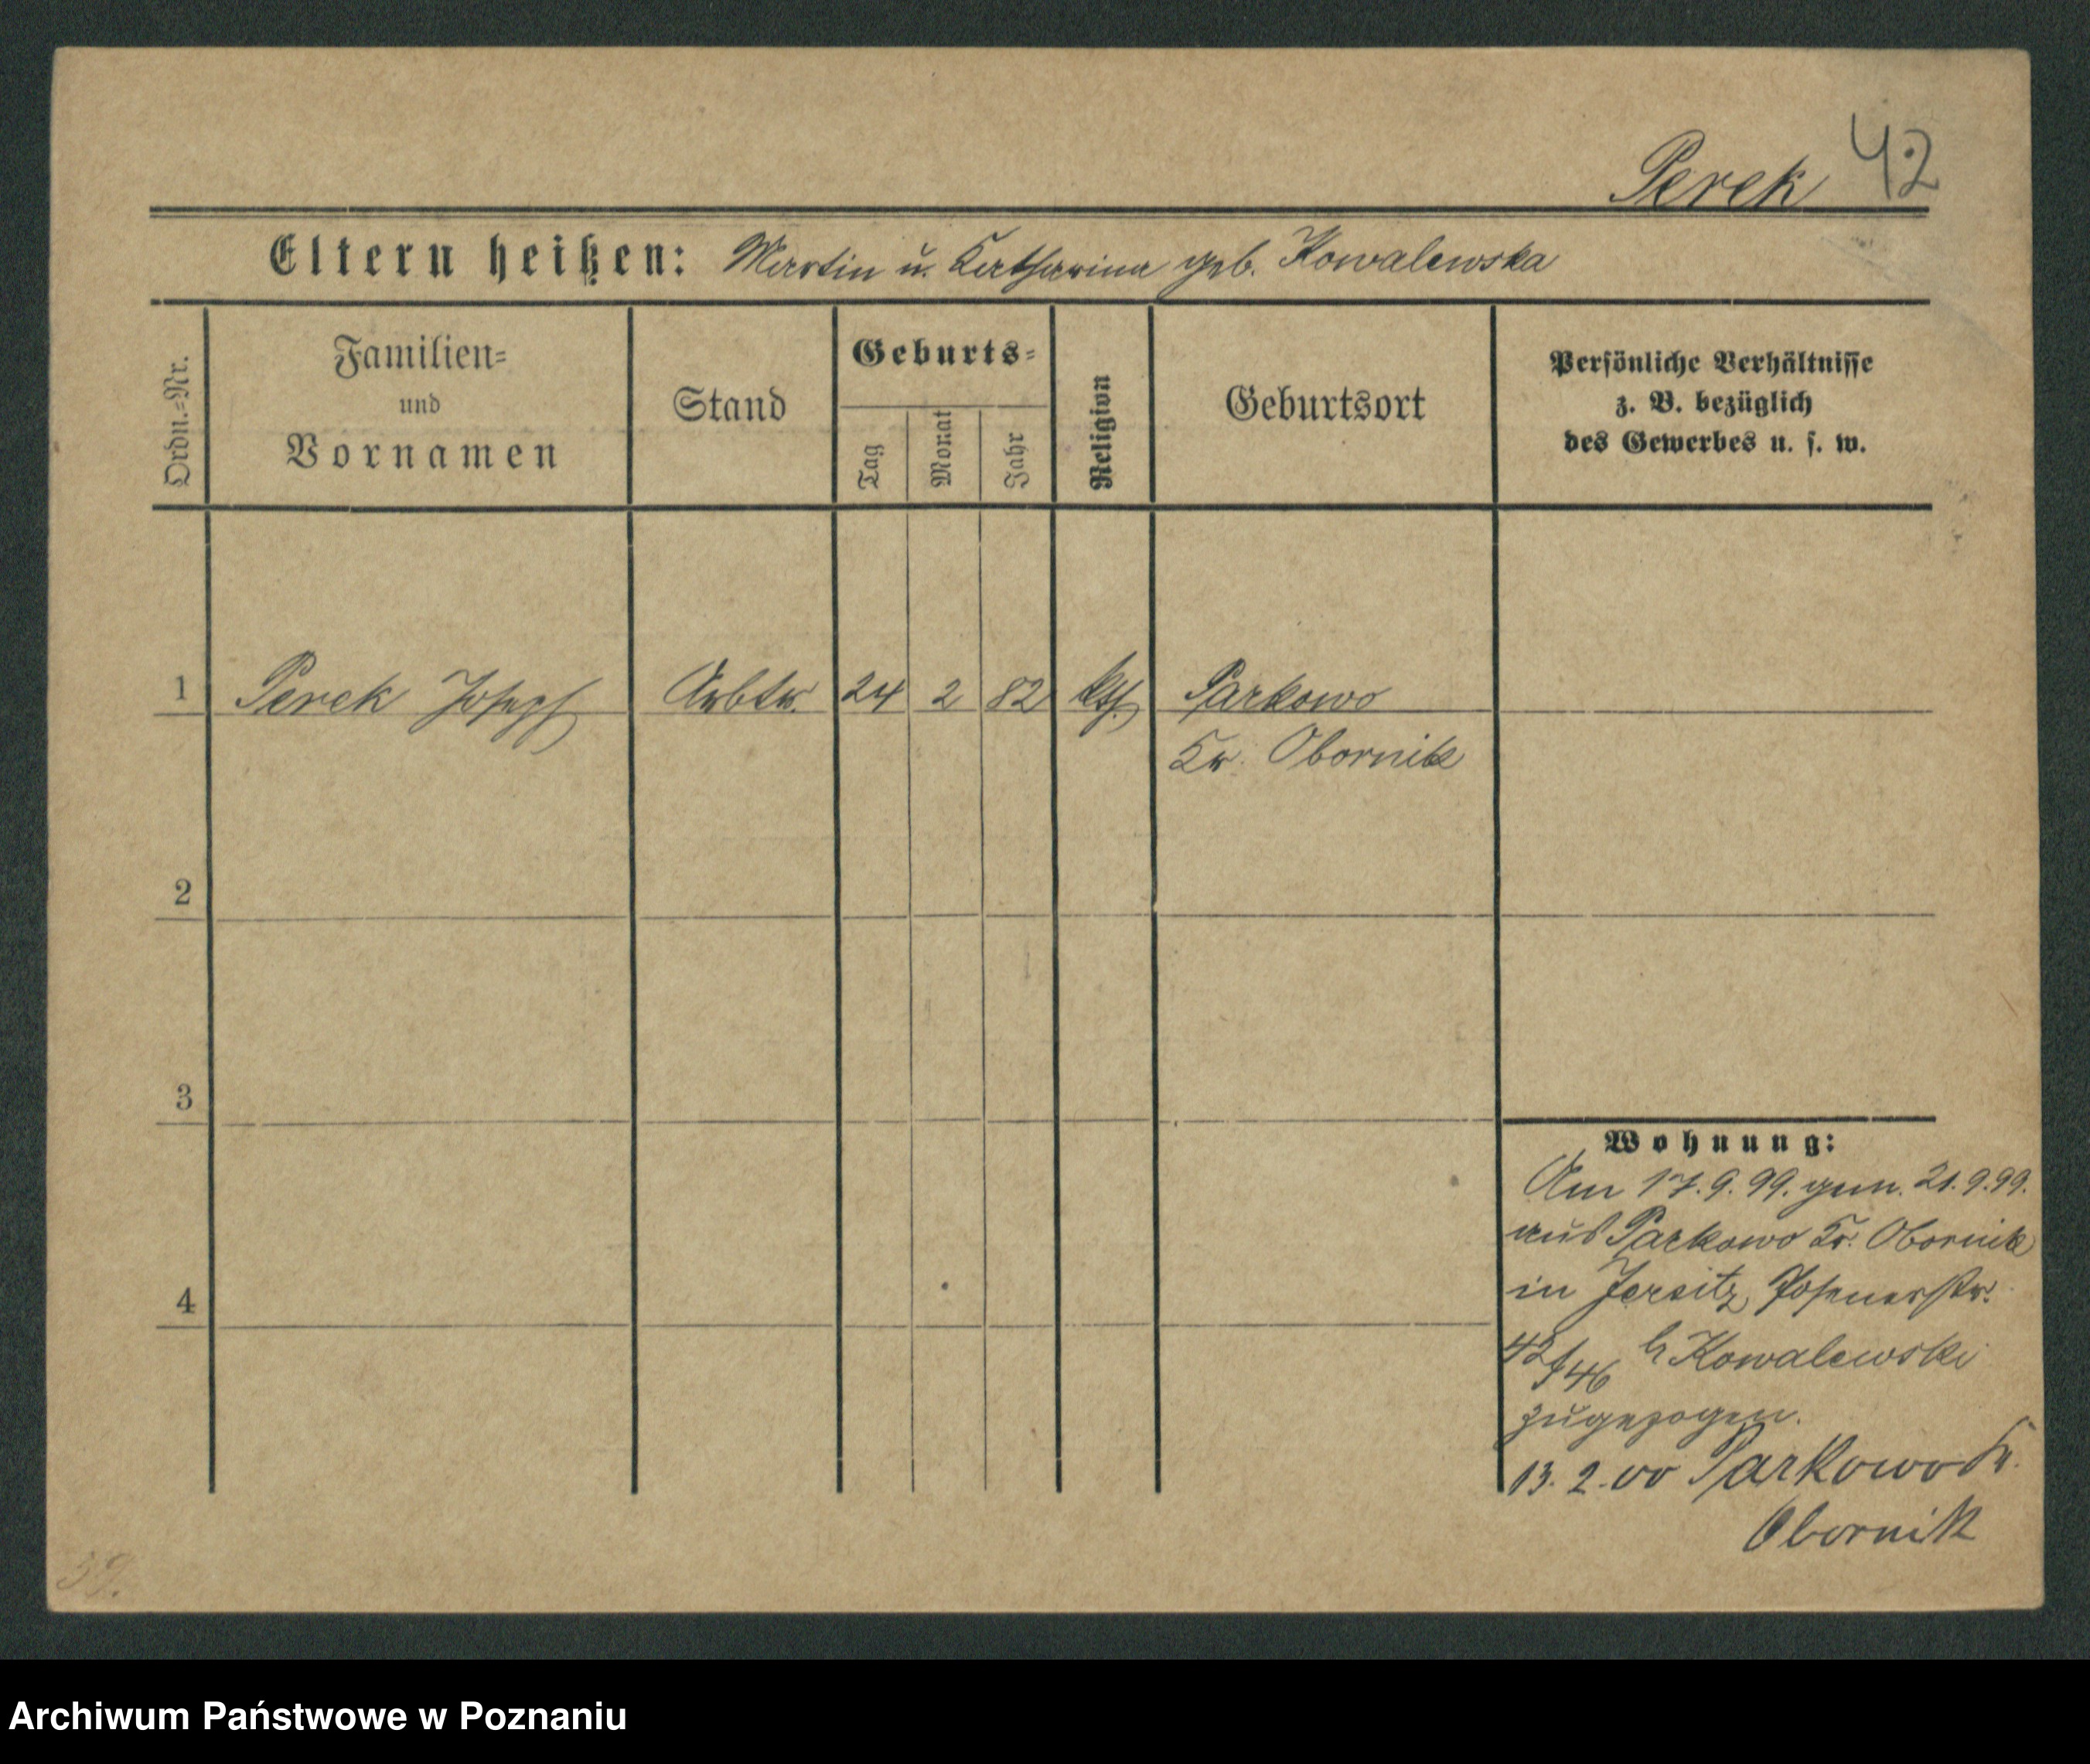 Perek 42
Eltern heißen: Martin u. Katharina geb. Kowalewska
Ordn.=Nr.
Familien=
und
Vornamen
Stand
Geburts=
Tag
Monat
Jahr
Religion
Geburtsort
Persönliche Verhältnisse
z. B. bezüglich
des Gewerbes u. s. w.
1 Perek Joseph Arbtr. 24 2 82 kth. Parkowo
Kr. Obornik
2
3
4
Wohnung:
Am 17.9.99. gem. 21.9.99.
aus Parkowo Kr. Obornik
in Jersitz, Posenerstr.
42/46 b Kowalewski
zugezogen.
13.2.00 Parkowo Kr.
Obornik
39.
Archiwum Państwowe w Poznaniu